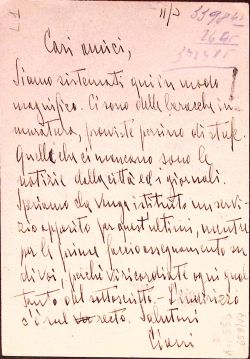 11/3
Cari amici,
Siamo sistemati qui in modo
magnifico. Ci sono delle baracche in
muratura, provviste persino di stufe.
Quelle che ci mancano sono le
notizie della città ed i giornali.
Speriamo da venga istituito un servi-
zio apposito per quest'ultimi, mentre
per le prime facciamo assegnamento su
di voi, perché vi ricordiate ogni quat
tanto del sottoscritto. - L'indirizzo
c'è sul recto. Saluti